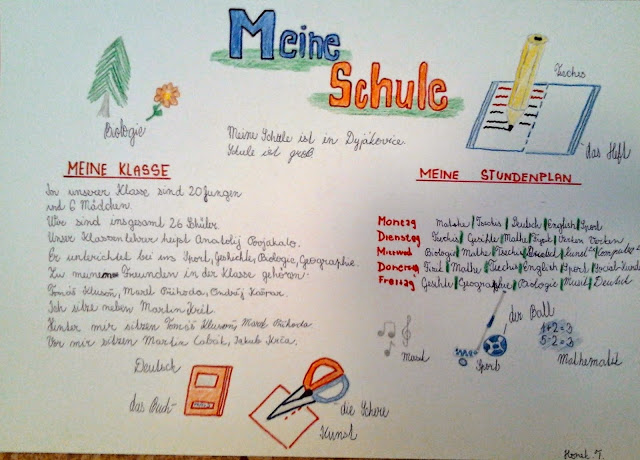 Meine
Schule
Tschis
Biologie
das Heft
Meine Schule ist in Dyjákovice.
Schule ist groß
MEINE KLASSE
In unserer Klasse sind 20 Jungen
und 6 Mädchen.
Wir sind insgesamt 26 Schüler.
Unser Klassenlehrer heißt Anatolij
Er unterichtet bei uns Sport, Geshichte, Biologie, Geographie.
Zu meinen Freunden in der klasse gehören:
Tomáš Klusoň, Marek Příhoda, Ondřej Kašpar.
Ich sitze neben Martin Král.
Hinter mir sitzen Tomáš Klusoň, Marek Příhoda.
Vor mir sitzen Martin Cabák, Jakub
MEINE STUNDENPLAN
Montag Mathe Tschis Deutsch English Sport
Dienstag Tschis Geschte Mathe
Mittwoch Biologi Mathe Tschis Deutsch Kunst
Donerstag Mathe Tschis English Sport
Freitag Geschte Geographie Biologie Musik Deutsch
der Ball
1+2=3
5-2=3
Musik
Sport
Mathematik
Deutsch
das Buch
die Schere
Kunst
Horák 7.